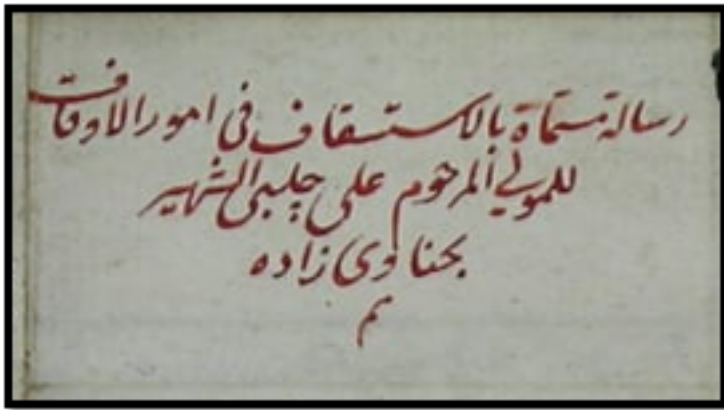 رسالة مسماة بالاستسقاف في امور الاوقاف
للمولي المرحوم علي چلبي الشهير
بحناوي زاده
م